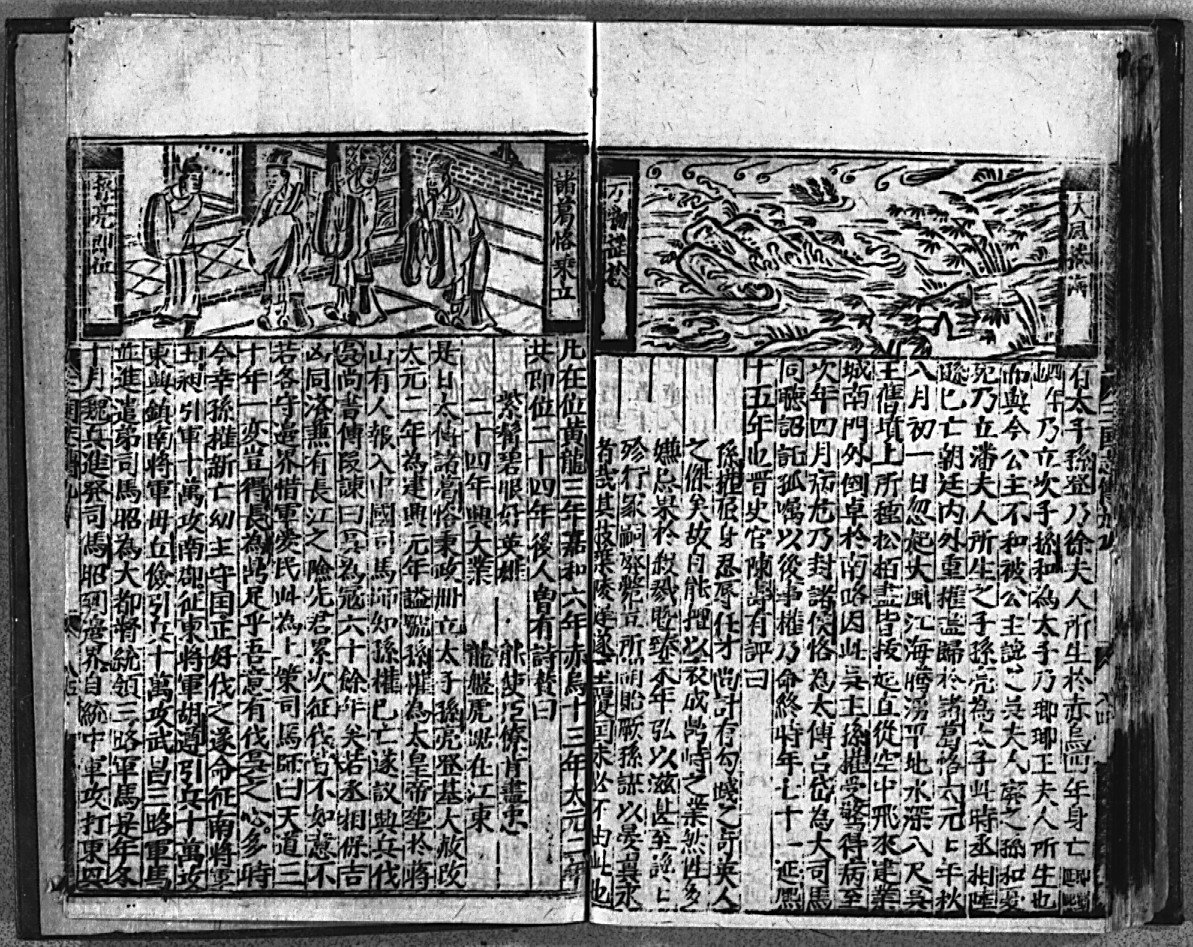 大風
諸葛恪秉立
孫亮即位
有太子孫登乃徐夫人所生於赤烏四年身亡
四年乃立次子孫和為太子乃瑯琊王夫人所生也
而與今公主不和被公主譖之吳夫人廢之孫和憂
死乃立潘夫人所生之子孫亮為太子此時丞相陸
遜已亡朝廷內外重權盡歸於諸葛恪太元七年秋
八月初一日忽起大風江海騰湧平地水深八尺吳
王舊墳上所種松柏盡皆拔起直從空中飛來建業
城南門外倒卓於南路因此吳王孫權受驚得病至
次年四月病危乃封諸侯恪為太傅呂岱為大司馬
同聽詔託孤囑以後事權乃命終時年七十一延熙
十五年也晉史官陳壽有評曰
孫權屈身忍辱任才尚計有勾踐之奇英人
之傑矣故能擅以表成鼎峙之業然性多
嫌忌果於殺戮暨臻末年弘以滋甚至讒
殄行冢嗣廢斃豈所謂貽厥孫謀以晏翼
者哉其枝葉陵遲遂亡覆國未必不由此也
凡在位黃龍三年嘉和六年赤烏十三年太元二
共即位二十四年後人曾有詩贊曰
紫髯碧眼好英雄 能使臣僚肯盡忠
二十四年興大業 龍盤虎踞在江東
是日太傅諸葛恪秉政冊立太子孫亮登基大赦改
太元二年為建興元年謚號孫權為太皇帝葬於蔣
山有人報入中國司馬師知孫權已亡遂議興兵伐
吳尚書傅嘏諫曰吳為寇六十餘年矣若丞相保吉
凶同濟兼有長江之險先君累次征伐皆不如意不
若各守邊界惜軍愛民此為上策司馬師曰天道三
十年一変豈得長為鼎足乎吾意有伐吳之心多時
今幸孫權新亡幼主守国正好伐之遂命征南將軍
王昶引軍十萬攻南郡征東將軍胡遵引兵十萬攻
東興鎮南將軍毋丘儉引兵十萬攻武昌三路軍馬
並進遣弟司馬昭為大都督統領三路軍馬是年冬
十月魏兵進発司馬昭到邊界自統中軍攻打東興